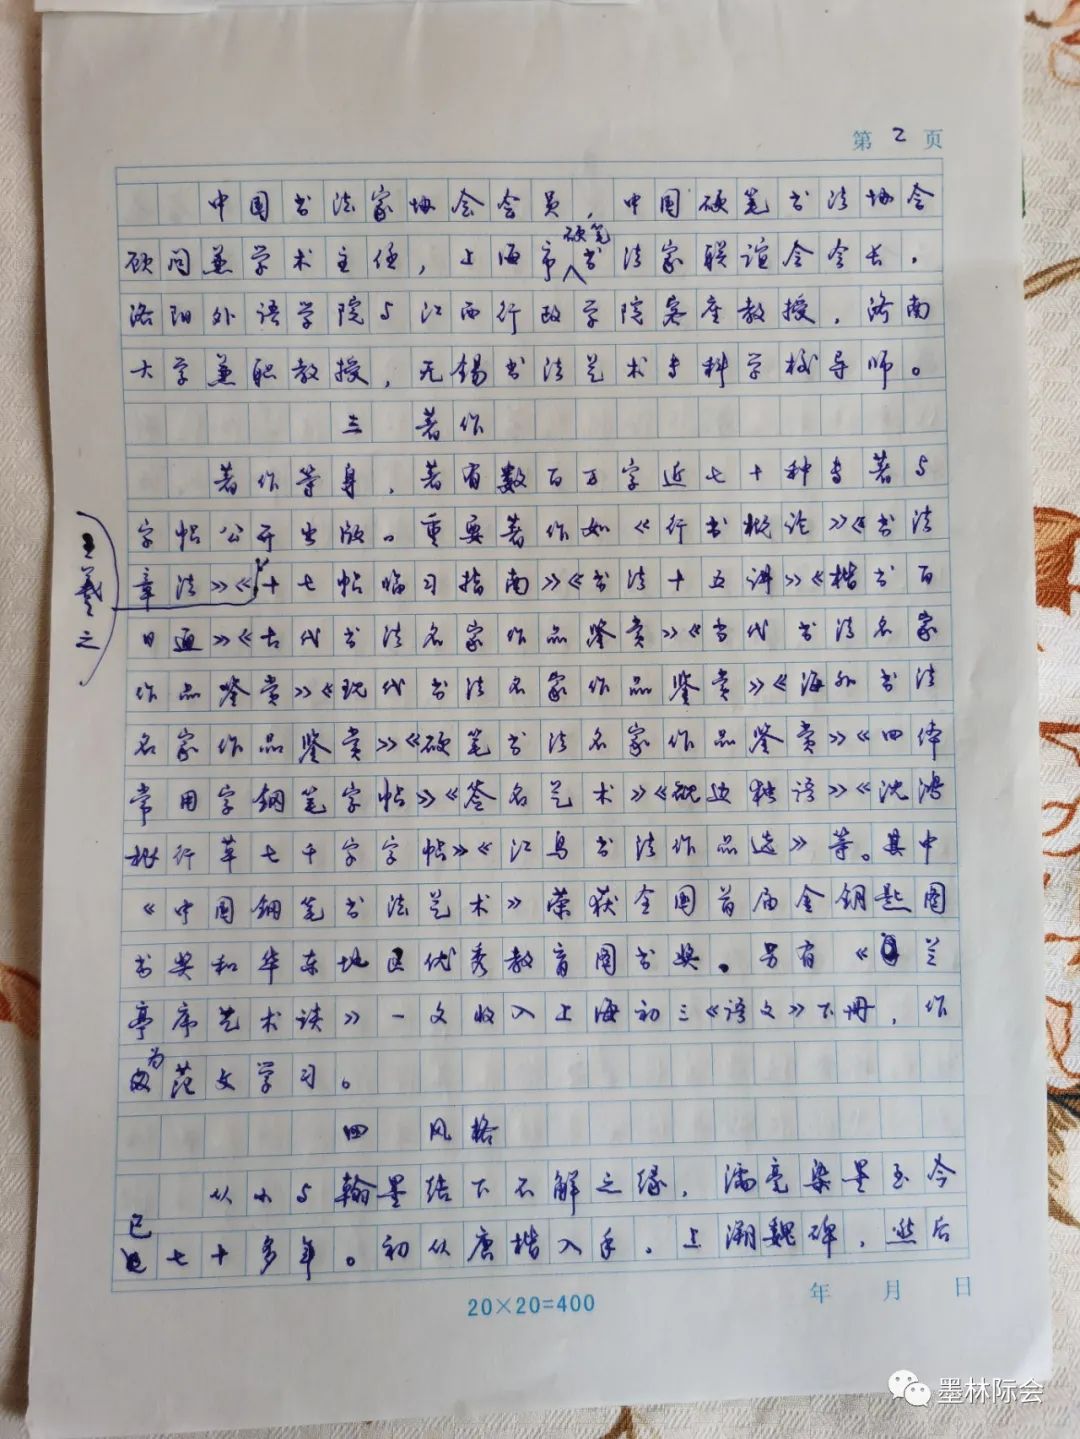 第2页
中国书法家协会会员，中国硬笔书法协会
顾问兼学术主任，上海市硬笔书法家联谊会会长，
洛阳外语学院与江西行政学院客座教授，济南
大学兼职教授，无锡书法艺术专科学校导师。
三 著作
著作等身，著有数百万字近七十种专著与
字帖公开出版。重要著作如《行书概论》《书法
章法》《王羲之十七帖临习指南》《书法十五讲》《楷书百
日通》《古代书法名家作品鉴赏》《当代书法名家
作品鉴赏》《现代书法名家作品鉴赏》《海外书法
名家作品鉴赏》《硬笔书法名家作品鉴赏》《四体
常用字钢笔字帖》《签名艺术》《砚边独语》《沈鸿
根行草七千字字帖》《江鸟书法作品选》等。其中
《中国钢笔书法艺术》荣获全国首届金钥匙图
书奖和华东地区优秀教育图书奖。另有《兰
亭序艺术谈》一文收入上海初三《语文》下册，作
为范文学习。
四 风格
从小与翰墨结下不解之缘，濡毫染墨至今
已七十多年。初从唐楷入手，上溯魏碑，然后
20×20=400
年 月 日
墨林际会